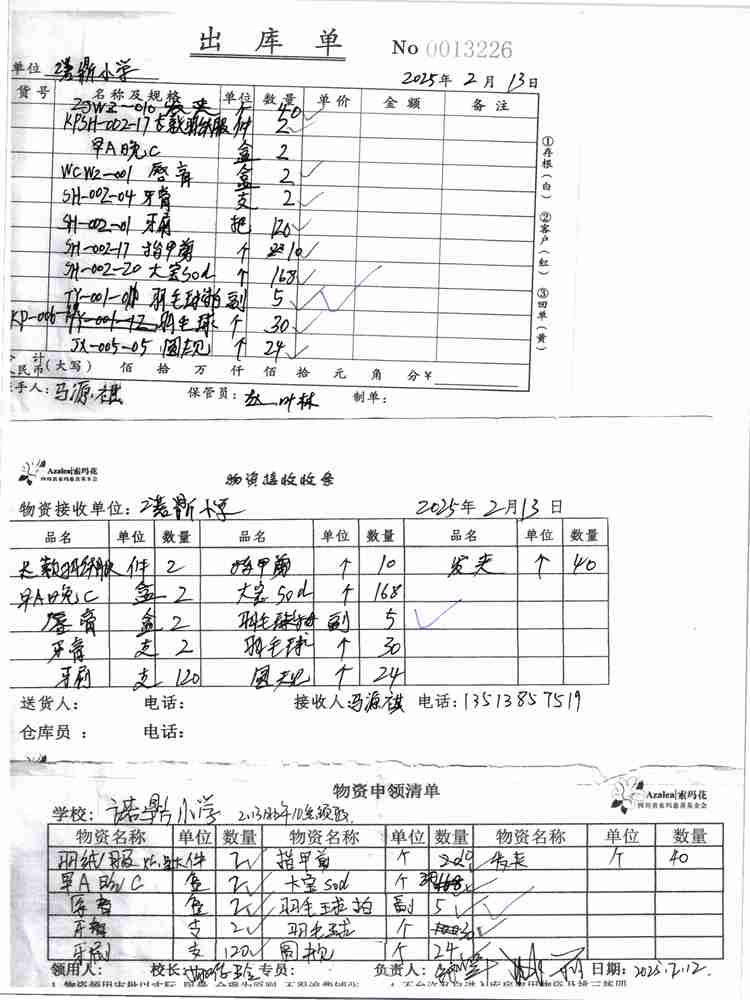 出库单 No 0013226
单位 诺鼎小学 2025年 2月 13日
货号 名称及规格 单位 数量 单价 金额 备注
ZJWZ-010 发夹 个 40
KPSH-002-17 长款羽绒服 件 2
早A晚C 盒 2
WCWZ-001 唇膏 盒 2
SH-002-04 牙膏 支 2
SH-002-01 牙刷 把 120
SH-002-17 指甲剪 个 10
SH-002-20 大宝sod 个 168
TY-001-01 羽毛球拍 副 5
KP-006 羽毛球 个 30
JX-005-05 圆规 个 24
合计
人民币(大写) 佰 拾 万 仟 佰 拾 元 角 分 ¥
经手人：马源祺 保管员： 制单：
①存根(白) ②客户(红) ③回单(黄)
Azalea|索玛花
四川省索玛慈善基金会
物资接收收条
物资接收单位：诺鼎小学 2025年 2月13日
品名 单位 数量 品名 单位 数量 品名 单位 数量
长款羽绒服 件 2 指甲剪 个 10 发夹 个 40
早A晚C 盒 2 大宝sod 个 168
唇膏 盒 2 羽毛球拍 副 5
牙膏 支 2 羽毛球 个 30
牙刷 支 120 圆规 个 24
送货人： 电话： 接收人：马源祺 电话：13513857519
仓库员： 电话：
物资申领清单
Azalea|索玛花
四川省索玛慈善基金会
学校：诺鼎小学 2.13 领取
物资名称 单位 数量 物资名称 单位 数量 物资名称 单位 数量
羽绒服 件 2 指甲剪 个 发夹 个 40
早A晚C 盒 2 大宝sod 个 168
唇膏 盒 2 羽毛球拍 副 5
牙膏 支 2 羽毛球 个 30
牙刷 支 120 圆规 个 24
领用人： 校长： 专员： 负责人： 日期：2025.2.12.